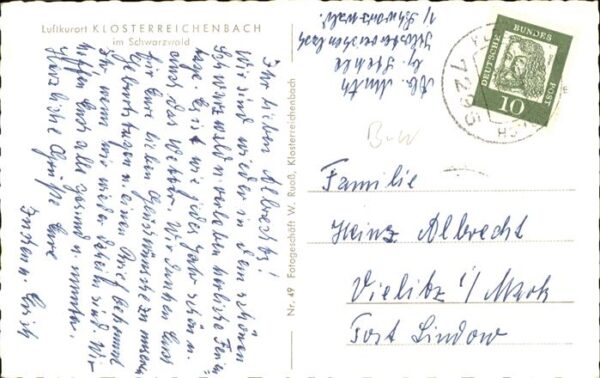 Luftkurort KLOSTERREICHENBACH
im Schwarzwald
Ihr lieben Albrechts!
Wir sind wieder in dem schönen
Schwarzwald u. verleben herrliche Ferien
tage. Es ist wie jedes Jahr schön u.
auch das Wetter. Wir danken Euch
für Eure lieben Glückwünsche zu unseren
Geburtstagen u. einen Brief bekommt
Ihr, wenn wir wieder daheim sind. Wir
hoffen Euch alle gesund u. munter.
Herzliche Grüße Eure
u. Erich
Nr. 49 Fotogeschäft W. Ruoß, Klosterreichenbach
Klosterreichenbach
i/ Schwarzwald.
DEUTSCHE BUNDESPOST
10
Familie
Heinz Albrecht
Vielitz i/Mark
Post Lindow